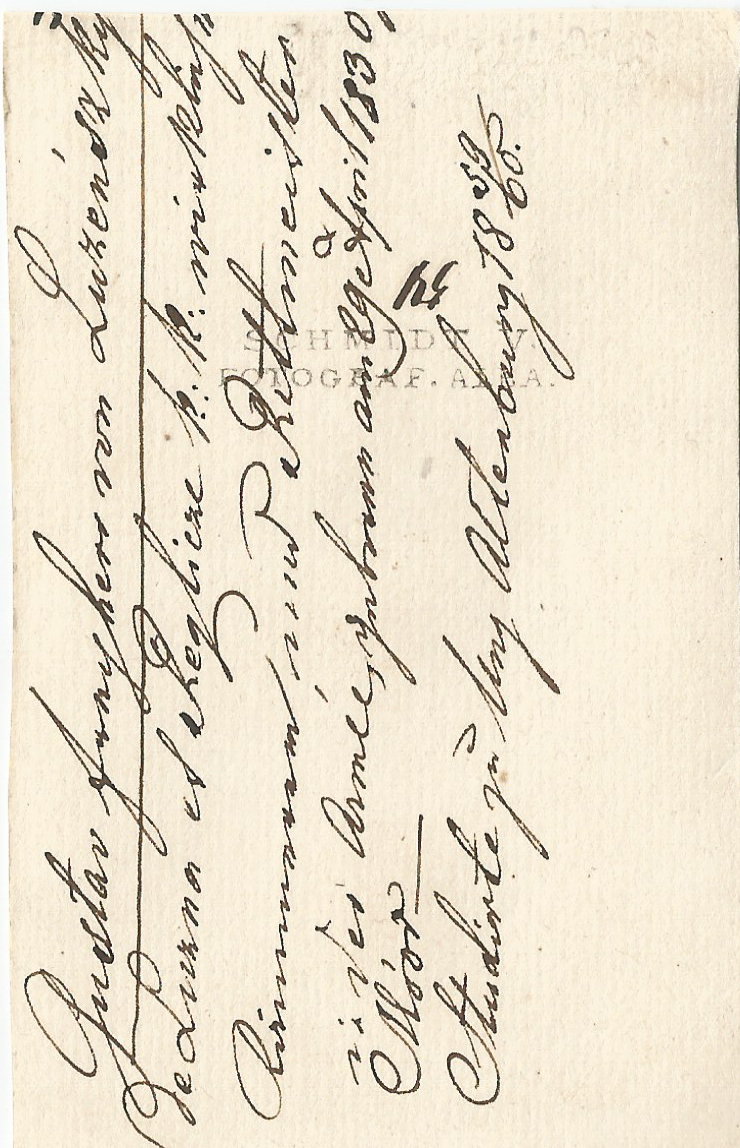 Gustav Freyherr von Luzénszky
de Luzna et Reglicze k: k: wirklich
Kämmerer und Rittmeister
in der Armee, geboren am 4 April 1830,
Moór —
Studirte zu Ung Altenburg 18 53/65.
SCHMIDT V.
FOTOGRAF. ALBA.